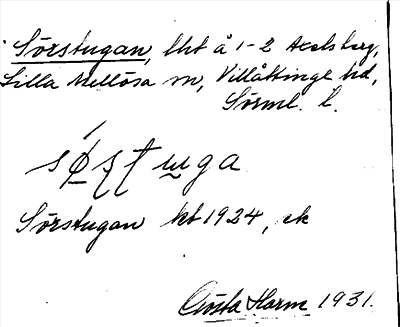 Sörstugan, lht å 1-2 Axelsberg,
Lilla Mellösa sn, Villåttinge hd,
Sörml. l.
Sörstugan kt 1924, ek
Gösta Harm 1931.